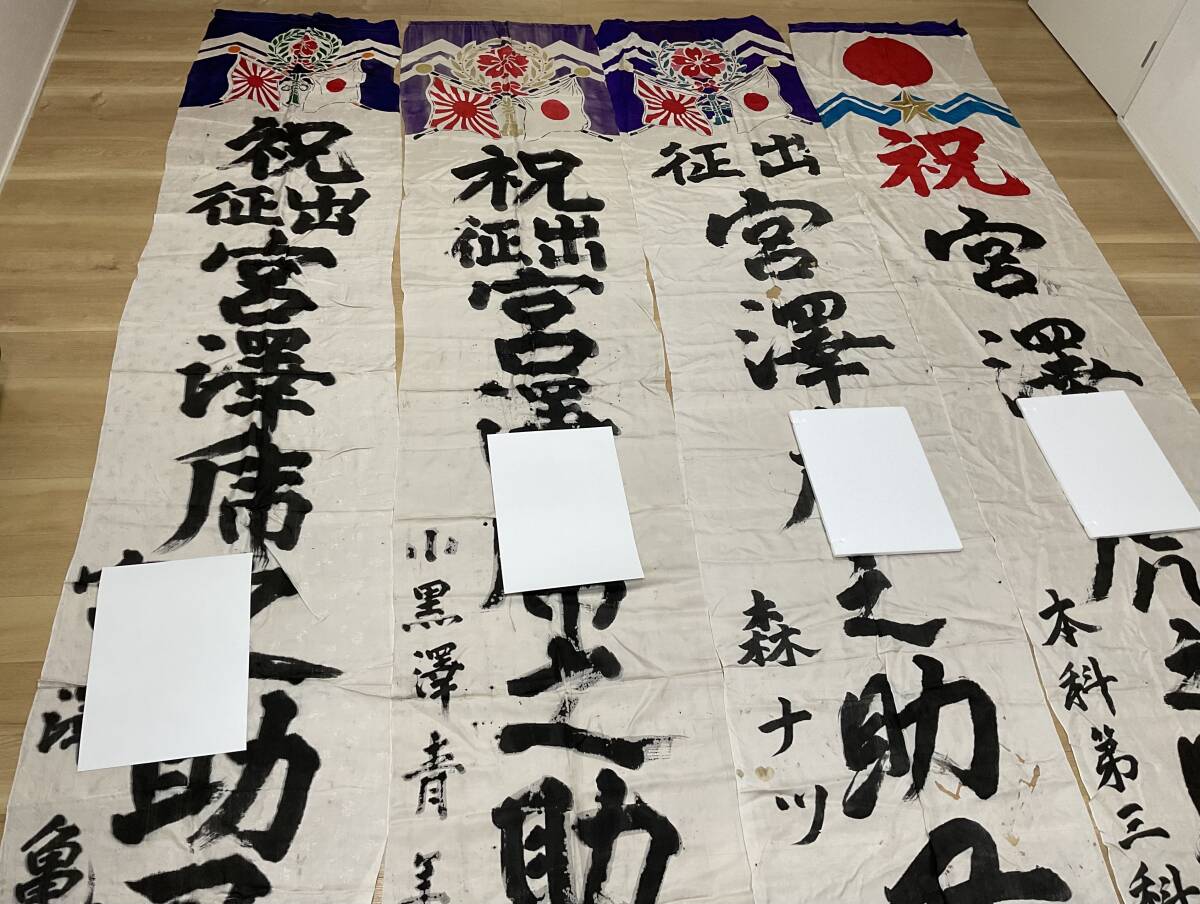 祝
宮澤
本科第三科
出征
宮澤
之助
森ナツ
祝
出征
宮澤
之助
小黒澤青
祝
出征
宮澤
助
亀